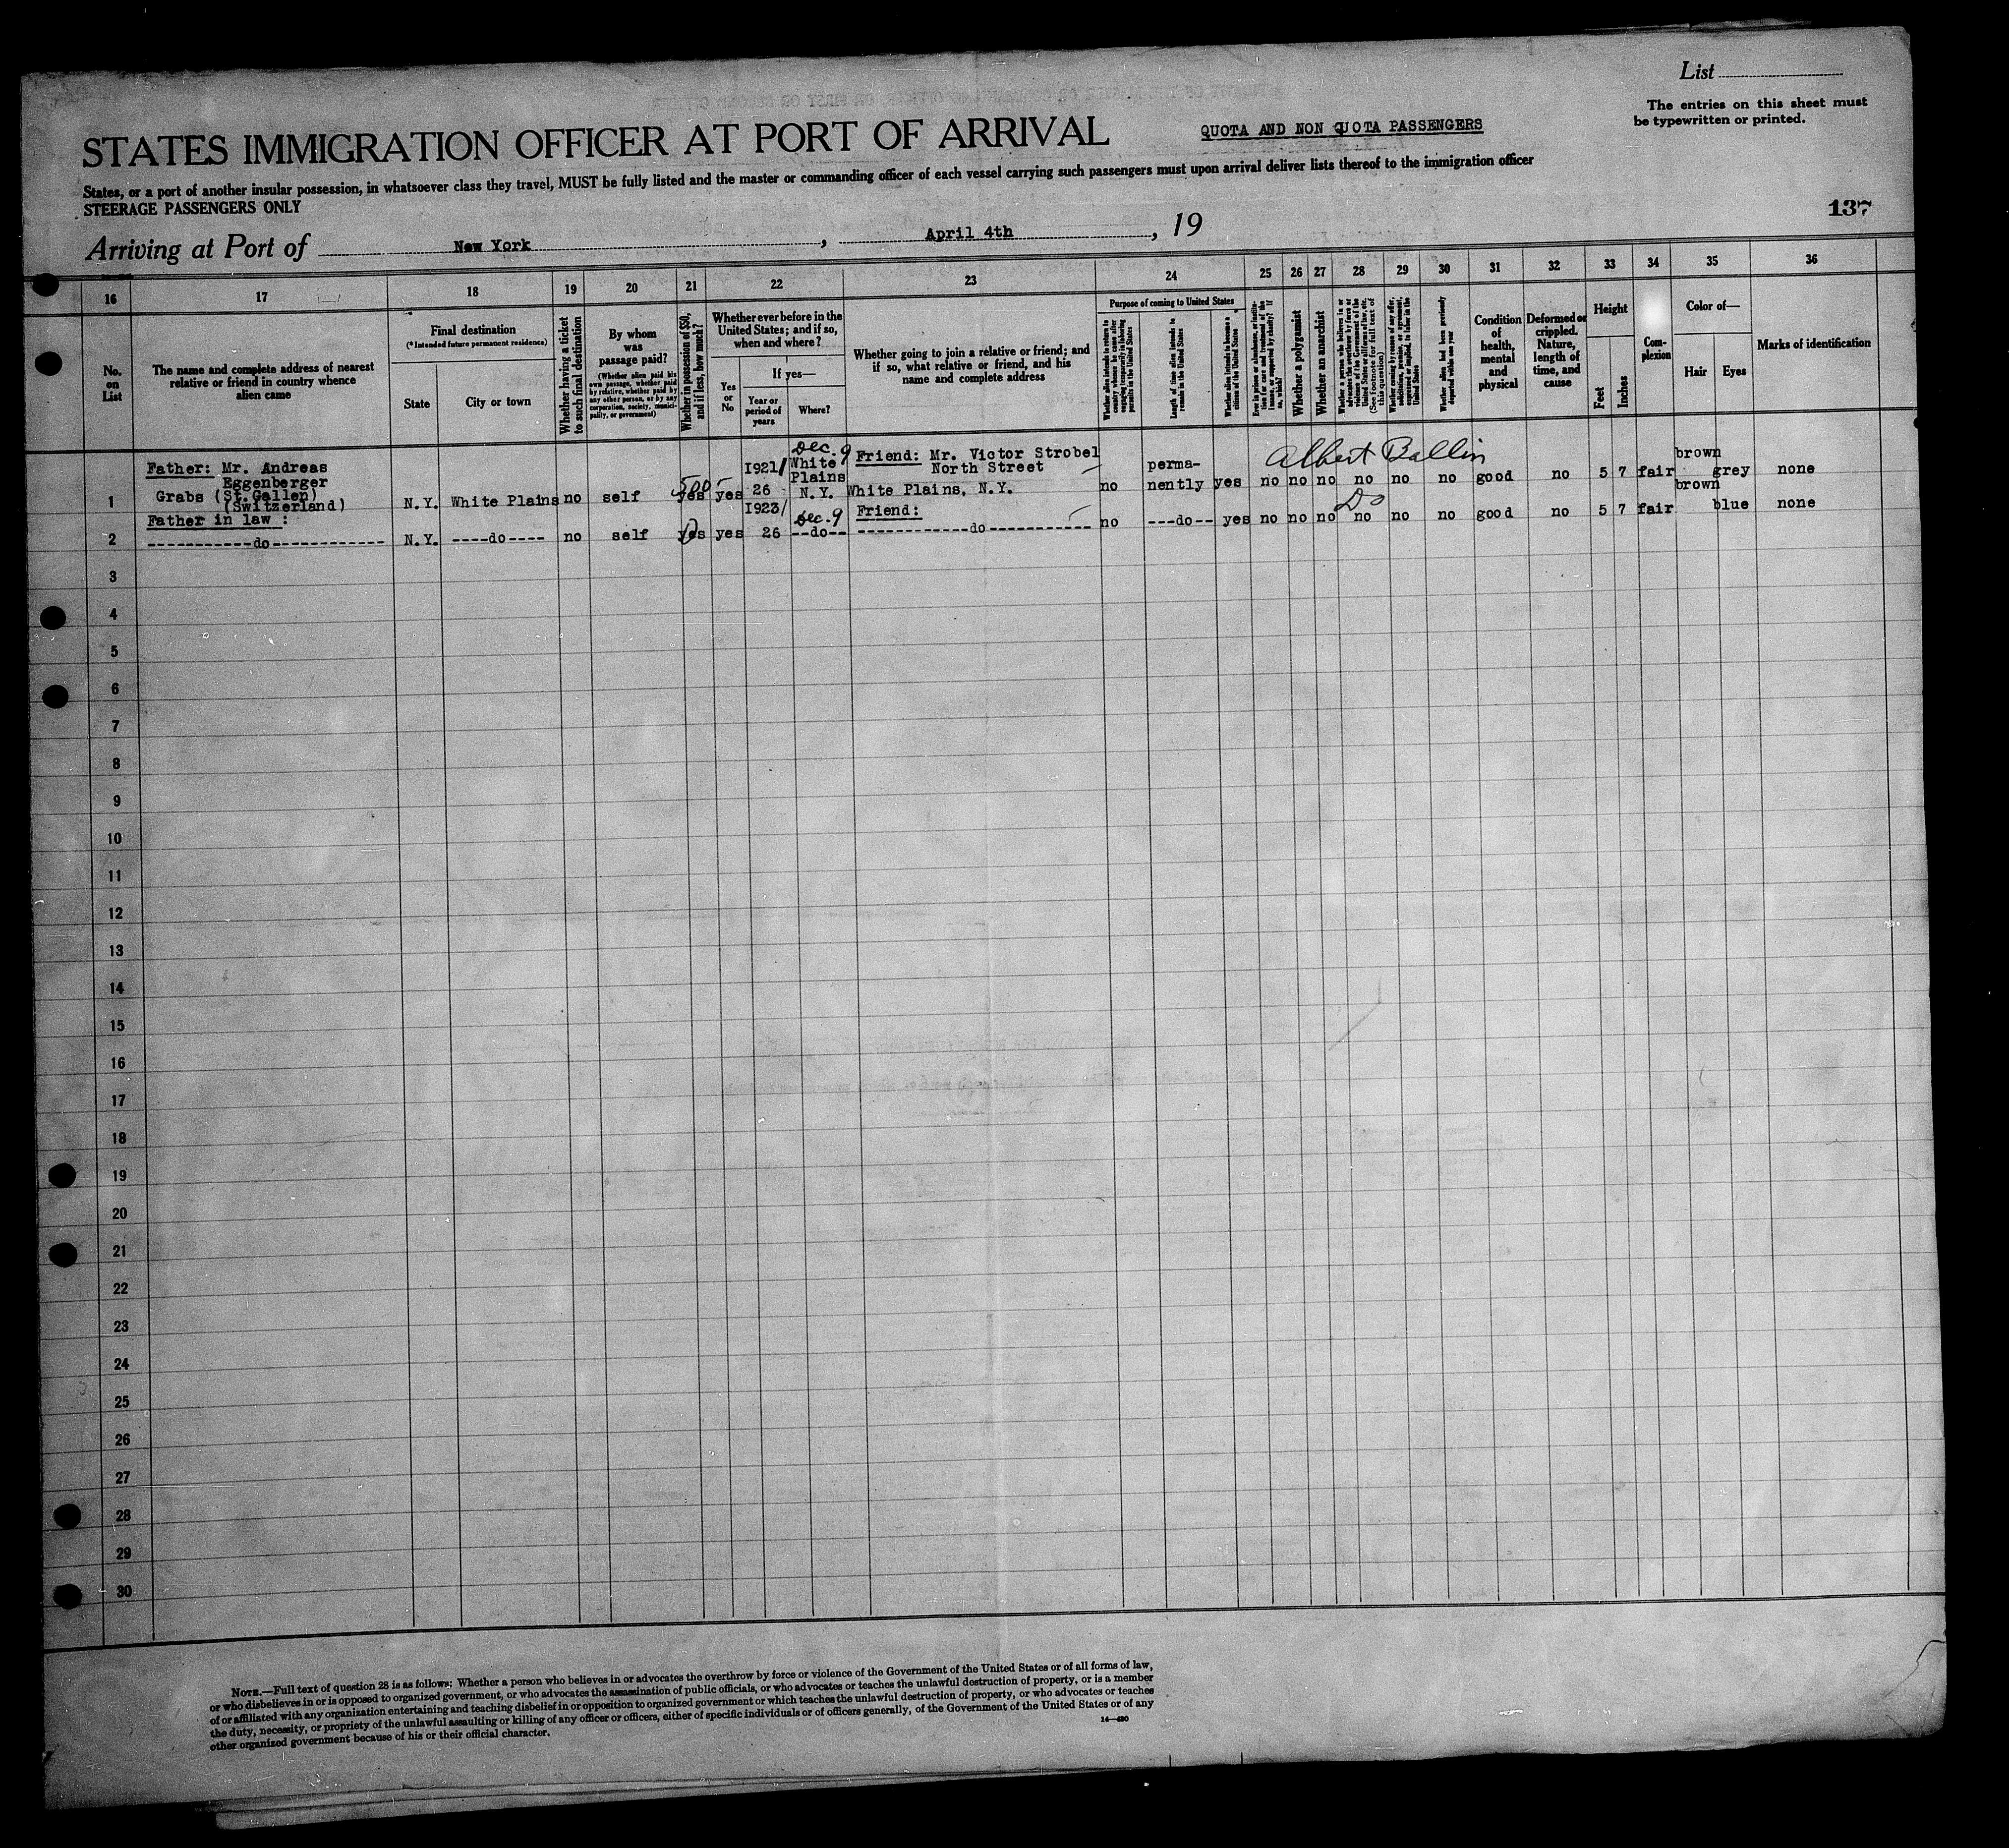 List
The entries on this sheet must
be typewritten or printed.
STATES IMMIGRATION OFFICER AT PORT OF ARRIVAL
QUOTA AND NON QUOTA PASSENGERS
States, or a port of another insular possession, in whatsoever class they travel, MUST be fully listed and the master or commanding officer of each vessel carrying such passengers must upon arrival deliver lists thereof to the immigration officer
STEERAGE PASSENGERS ONLY
137
Arriving at Port of New York, April 4th, 19
16 17 18 19 20 21 22 23 24 25 26 27 28 29 30 31 32 33 34 35 36
No. on List
The name and complete address of nearest
relative or friend in country whence
alien came
Final destination
(*Intended future permanent residence)
State
City or town
Whether having a ticket
to such final destination
By whom
was
passage paid?
(Whether alien paid his
own passage, whether paid
by relative, whether paid by
any other person, or by any
corporation, society, munici-
pality, or government)
Whether in possession of $50,
and if less, how much?
Whether ever before in the
United States; and if so,
when and where?
Yes
or
No
If yes—
Year or
period of
years
Where?
Whether going to join a relative or friend; and
if so, what relative or friend, and his
name and complete address
Purpose of coming to United States
Whether alien intends to return to
country whence he came after
engaging temporarily in laboring
pursuits in the United States
Length of time alien intends to
remain in the United States
Whether alien intends to become a
citizen of the United States
Ever in prison or almshouse, or institu-
tion for care and treatment of the
insane, or supported by charity? If
so, which?
Whether a polygamist
Whether an anarchist
Whether a person who believes in or
advocates the overthrow by force or
violence of the Government of the
United States or all forms of law, etc.
(See footnote for full text of
this question)
Whether coming by reason of any offer,
solicitation, promise, or agreement,
expressed or implied, to labor in the
United States
Whether alien had been previously
deported within one year
Condition
of
health,
mental
and
physical
Deformed or
crippled.
Nature,
length of
time, and
cause
Height
Feet
Inches
Com-
plexion
Color of—
Hair
Eyes
Marks of identification
Albert Ballin
1 Father: Mr. Andreas
Eggenberger
Grabs (St.Gallen)
(Switzerland)
N.Y. White Plains no self 500- yes yes 1921/
26 Dec. 9
White
Plains
N.Y. Friend: Mr. Victor Strobel
North Street
White Plains, N.Y. no perma-
nently yes no no no no no no good no 5 7 fair brown grey none
2 Father in law :
------------do------------
N.Y. ----do---- no self yes yes 1923/
26 Dec. 9
--do-- Friend:
------------do------------ no ---do-- yes no no no Do no no no good no 5 7 fair brown blue none
3
4
5
6
7
8
9
10
11
12
13
14
15
16
17
18
19
20
21
22
23
24
25
26
27
28
29
30
NOTE.—Full text of question 28 is as follows: Whether a person who believes in or advocates the overthrow by force or violence of the Government of the United States or of all forms of law,
or who disbelieves in or is opposed to organized government, or who advocates the assassination of public officials, or who advocates or teaches the unlawful destruction of property, or is a member
of or affiliated with any organization entertaining and teaching disbelief in or opposition to organized government or which teaches the unlawful destruction of property, or who advocates or teaches
the duty, necessity, or propriety of the unlawful assaulting or killing of any officer or officers, either of specific individuals or of officers generally, of the Government of the United States or of any
other organized government because of his or their official character.
14—430